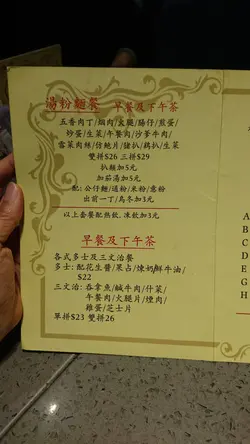 湯粉麵餐 早餐及下午茶
五香肉丁/烟肉/火腿/腸仔/煎蛋/
炒蛋/生菜/午餐肉/沙爹牛肉/
雪菜肉絲/仿鮑片/豬扒/鷄扒/生菜
雙拼$26 三拼$29
扒類加5元
加茄湯加5元
配:公仔麵/通粉/米粉/意粉
出前一丁/烏冬加3元
以上套餐配熱飲, 凍飲加3元
早餐及下午茶
各式多士及三文治餐
多士: 配花生醬/果占/煉奶/鮮牛油/
$22
三文治: 吞拿魚/鹹牛肉/什菜/
午餐肉/火腿片/煙肉/
雞蛋/芝士片
單拼$23 雙拼26
A
B
C
D
E
G
H